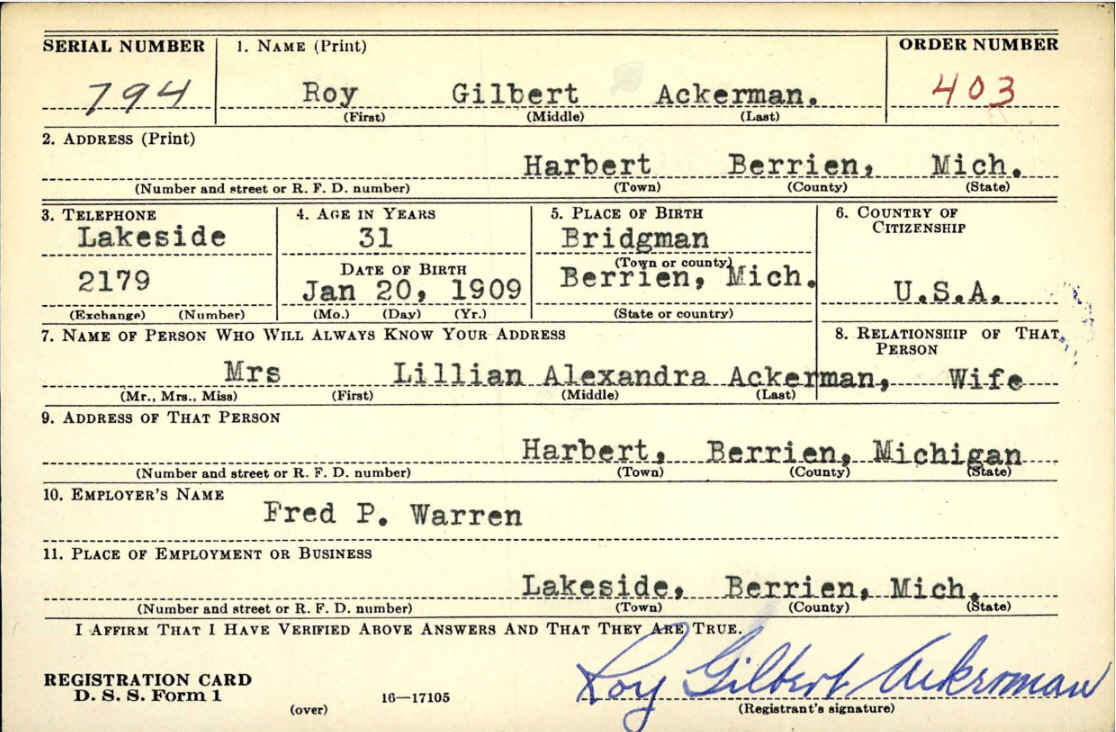 SERIAL NUMBER 1. NAME (Print) ORDER NUMBER
794 Roy Gilbert Ackerman. 403
(First) (Middle) (Last)
2. ADDRESS (Print)
Harbert Berrien, Mich.
(Number and street or R. F. D. number) (Town) (County) (State)
3. TELEPHONE 4. AGE IN YEARS 5. PLACE OF BIRTH 6. COUNTRY OF CITIZENSHIP
Lakeside 31 Bridgman
(Town or county)
2179 DATE OF BIRTH Berrien, Mich.
Jan 20, 1909 U.S.A.
(Exchange) (Number) (Mo.) (Day) (Yr.) (State or country)
7. NAME OF PERSON WHO WILL ALWAYS KNOW YOUR ADDRESS 8. RELATIONSHIP OF THAT PERSON
Mrs Lillian Alexandra Ackerman, Wife
(Mr., Mrs., Miss) (First) (Middle) (Last)
9. ADDRESS OF THAT PERSON
Harbert, Berrien, Michigan
(Number and street or R. F. D. number) (Town) (County) (State)
10. EMPLOYER'S NAME
Fred P. Warren
11. PLACE OF EMPLOYMENT OR BUSINESS
Lakeside, Berrien, Mich.
(Number and street or R. F. D. number) (Town) (County) (State)
I AFFIRM THAT I HAVE VERIFIED ABOVE ANSWERS AND THAT THEY ARE TRUE.
REGISTRATION CARD
D. S. S. Form 1 16—17105 Roy Gilbert Ackerman
(over) (Registrant's signature)